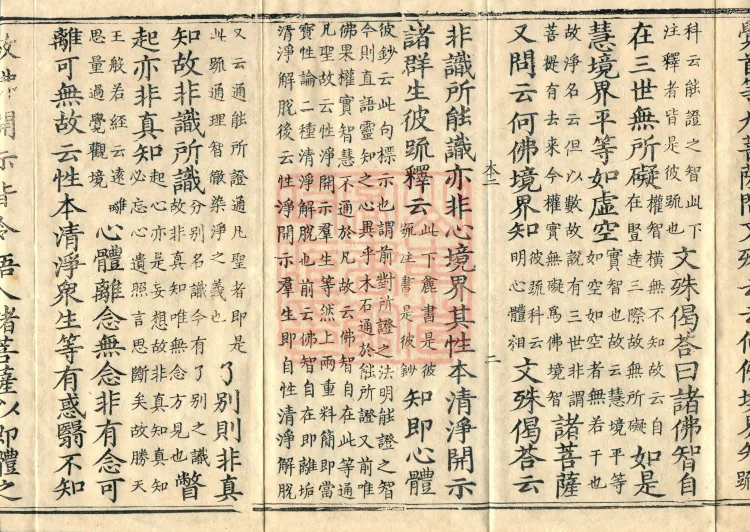 科云能證之智此下
注釋者皆是彼疏也
文殊偈荅曰諸佛智自
在三世無所礙
權智橫無不知故云自
在竪達三際故無所礙
如是
慧境界平等如虛空
實智也故云慧境平等
如空如空者無若干也
故淨名云但以數故說有三世非謂
菩提有去來今權實無礙爲佛境智
諸菩薩
又問云何佛境界知
彼疏科云
明心體相
文殊偈荅云
二
非識所能識亦非心境界其性本清淨開示
諸群生彼疏釋云
此下麁書是彼
疏注書是彼鈔
知即心體
彼鈔云此句標示也謂前對所證之法明能證之智
今則直語靈知之心異乎木石通於能所證又前唯
佛果權實智慧不通於凡故云佛智自在此等通
凡聖故云性淨開示羣生等然上兩重料簡即當
寶性論二種清淨解脫也前云佛智自在即離垢
清淨解脫後云性淨開示羣生即自性清淨解脫
又云通能所證通凡聖者即是
此疏通理智徹染淨之義也
了別則非真
知故非識所識
分別名識今有了別之識
故非真知唯無念方見也
瞥
起亦非真知
起心亦是妄想故非真知真知
必忘心遺照言思斷矣故勝天
王般若經云遠離
思量過覺觀境
心體離念無念非有念可
離可無故云性本清淨衆生等有惑翳不知
開示皆令悟入諸菩薩以即體之